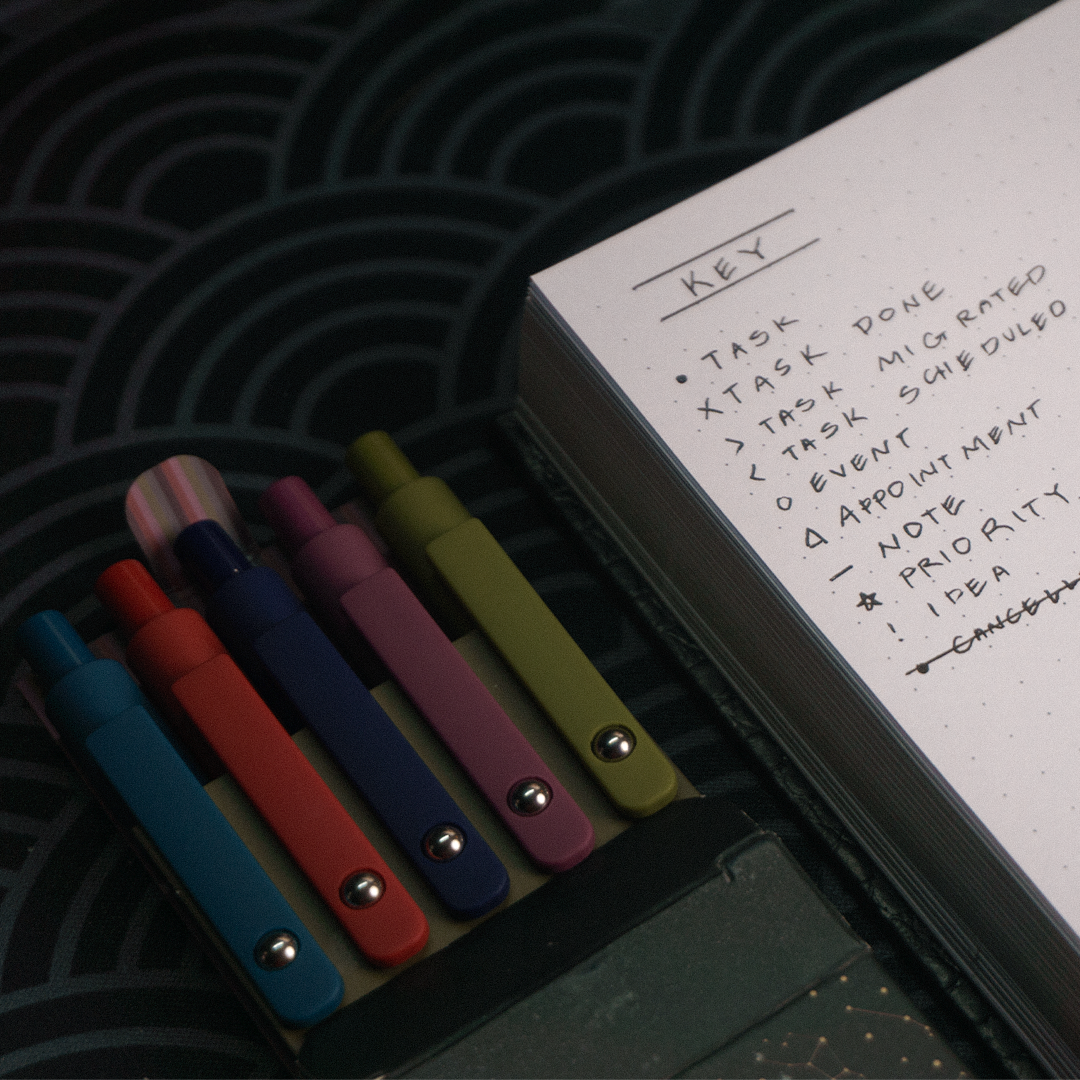 KEY
• TASK
X TASK DONE
> TASK MIGRATED
< TASK SCHEDULED
O EVENT
Δ APPOINTMENT
— NOTE
☆ PRIORITY
! IDEA